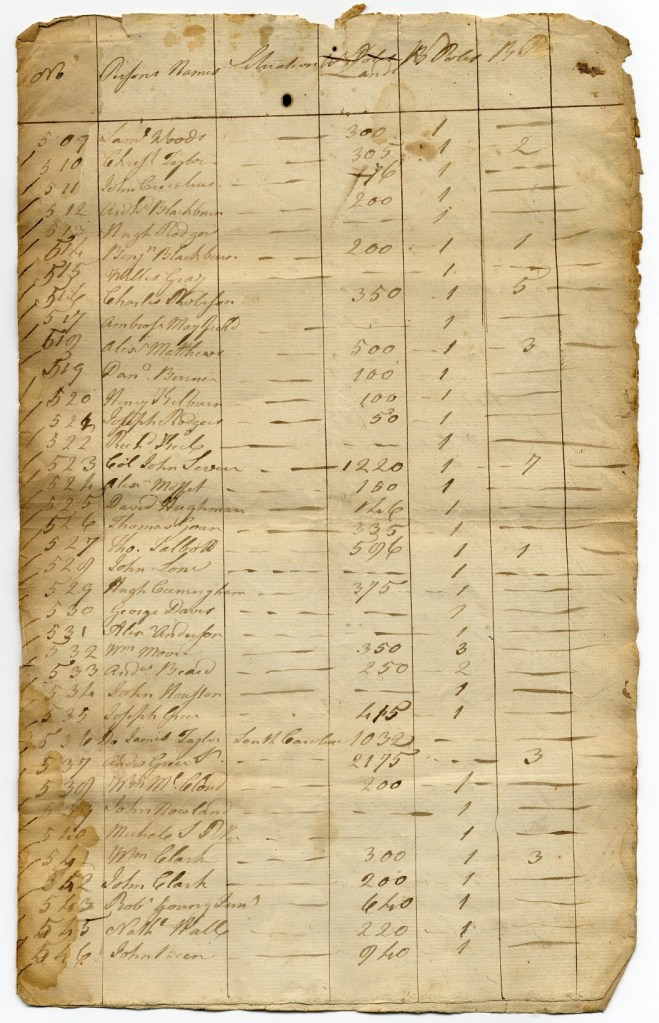 No Persons Names Situation Land W Poles B P
509 Saml Woods — 300 1
510 Chrisr Taylor — 305 1 2
511 John — 176 1 —
512 Andw Blackburn — 200 1 —
513 Hugh Rodgers — — 1 —
514 Benjn Blackburn — 200 1 1
515 Willis Gray — — 1 —
516 Charles Robeson — 350 1 5
517 Ambrose Mayfield — — 1 —
518 Alexr Matthews — 500 1 3
519 Danl — 100 1 —
520 Henry Kilburn — 100 1 —
521 Joseph Rodgers — 50 1 —
522 Richd — — 1 —
523 Col John Sevier — 1220 1 7
524 Alexr Moffet — 150 1 —
525 David Hughman — 146 1 —
526 Thomas Goan — 335 1 —
527 Tho. Talbott — 596 1 1
528 John Lone — — 1 —
529 Hugh Cunningham — 375 1 —
530 George Davis — — 1 —
531 Alexr Anderson — — 1 —
532 Wm Moore — 350 3 —
533 Andw Beard — 250 2 —
534 John Houston — — 1 —
535 Joseph Greer — 415 1 —
536 Do James Taylor South Carolina 1032 — —
537 Andw Greer Sr 2175 — 3
538 Wm Mc Cloud — 200 1 —
539 John Rowland — — 1 —
540 Michale — 1 —
541 Wm Clark — 300 1 3
542 John Clark — 200 1 —
543 Robt Young Senr 640 1 —
545 Nathl Hall — 220 1 —
546 John Been — 940 1 —